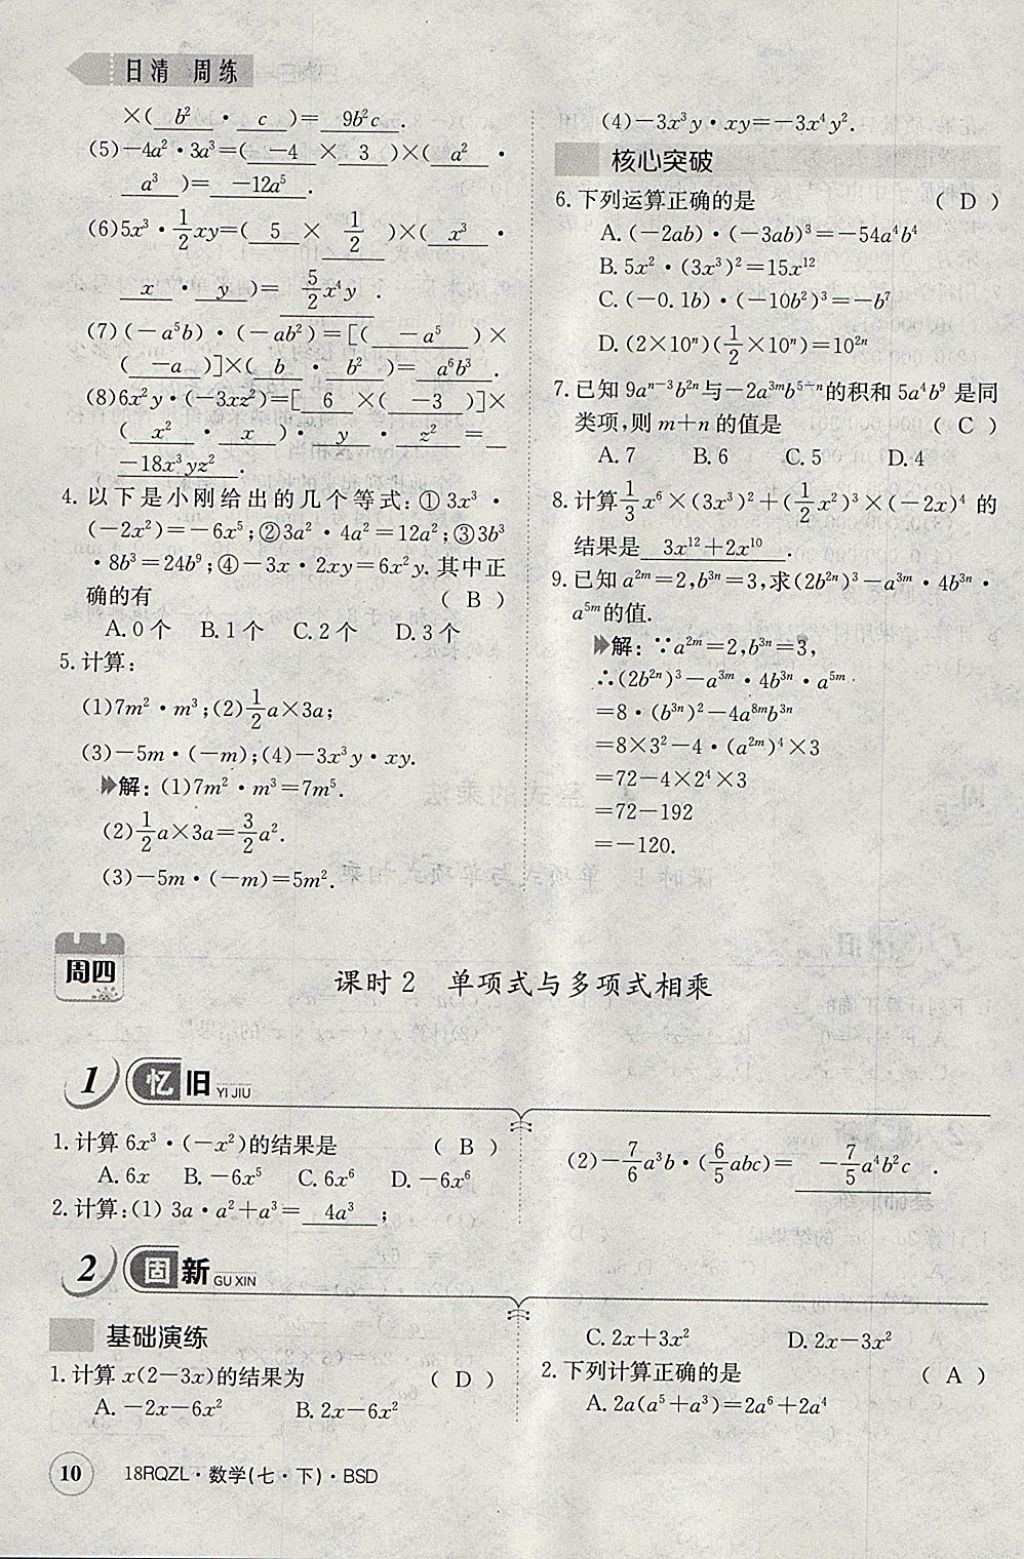 日清 周练
×( b² · c )= 9b²c .
(5)-4a²·3a³=( -4 × 3 )×( a² ·
a³ )= -12a⁵ .
(6)5x³·\frac{1}{2}xy=( 5 × \frac{1}{2} )×( x³ ·
x · y )= \frac{5}{2}x⁴y .
(7)(-a⁵b)·(-ab²)=[( -a⁵ )×
( -a )]×( b · b² )= a⁶b³ .
(8)6x²y·(-3xz²)=[ 6 ×( -3 )]×
( x² · x )· y · z² =
-18x³yz² .
4. 以下是小刚给出的几个等式:①3x³·
(-2x²)=-6x⁵;②3a²·4a²=12a²;③3b³
·8b³=24b⁹;④-3x·2xy=6x²y.其中正
确的有 ( B )
A.0个 B.1个 C.2个 D.3个
5.计算:
(1)7m²·m³;(2)\frac{1}{2}a×3a;
(3)-5m·(-m);(4)-3x³y·xy.
解:(1)7m²·m³=7m⁵.
(2)\frac{1}{2}a×3a=\frac{3}{2}a².
(3)-5m·(-m)=5m².
(4)-3x³y·xy=-3x⁴y².
核心突破
6.下列运算正确的是 ( D )
A.(-2ab)·(-3ab)³=-54a⁴b⁴
B.5x²·(3x³)²=15x¹²
C.(-0.1b)·(-10b²)³=-b⁷
D.(2×10ⁿ)(\frac{1}{2}×10ⁿ)=10²ⁿ
7.已知9aⁿ⁻³b²ⁿ与-2a³ᵐb⁵⁻ⁿ的积和5a⁴b⁹是同
类项,则m+n的值是 ( C )
A.7 B.6 C.5 D.4
8.计算\frac{1}{3}x⁶×(3x³)²+(\frac{1}{2}x²)³×(-2x)⁴的
结果是 3x¹²+2x¹⁰ .
9.已知a²ᵐ=2,b³ⁿ=3,求(2b²ⁿ)³-a³ᵐ·4b³ⁿ·
a⁵ᵐ的值.
解:∵a²ᵐ=2,b³ⁿ=3,
∴(2b²ⁿ)³-a³ᵐ·4b³ⁿ·a⁵ᵐ
=8·(b³ⁿ)²-4a⁸ᵐb³ⁿ
=8×3²-4·(a²ᵐ)⁴×3
=72-4×2⁴×3
=72-192
=-120.
周四
课时2 单项式与多项式相乘
1 忆旧 YI JIU
1.计算6x³·(-x²)的结果是 ( B )
A.6x B.-6x⁵ C.6x⁶ D.-6x⁶
2.计算:(1) 3a·a²+a³= 4a³ ;
(2)-\frac{7}{6}a³b·(\frac{6}{5}abc)= -\frac{7}{5}a⁴b²c .
2 固新 GU XIN
基础演练
1.计算x(2-3x)的结果为 ( D )
A.-2x-6x² B.2x-6x²
C.2x+3x² D.2x-3x²
2.下列计算正确的是 ( A )
A.2a(a⁵+a³)=2a⁶+2a⁴
10 18RQZL·数学(七·下)·BSD